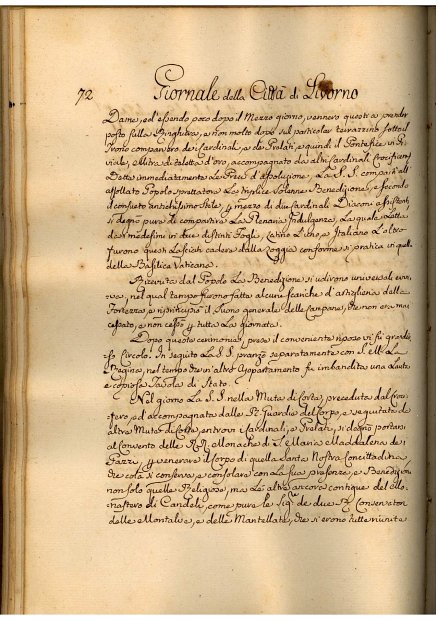 72 Giornale della Città di Livorno
Dame, ed essendo poco dopo il Mezzo giorno, vennero questi a prender
posto sulla Ringhiera, e non molto dopo sul particolar terrazzino sotto il
Trono comparvero dei Cardinali, e de Prelati, e quindi il Pontefice in Pi-
viale, e Mitra di taletta d'oro, accompagnato da altri Cardinali, Crocifero
Dette immediatamente le Preci d'assoluzione, La S. S. compartì all'
affollato Popolo spettatore La triplice Solenne Benedizione, e secondo
il consueto antichissimo stile, p mezzo di due Cardinali Diaconi assistenti
si degnò pure di compartire La Plenaria Indulgenza, La quale Letta
da medesimi in due distinti Fogli, Latino L'uno, e Italiano L'altro
furono questi Lasciati cadere dalla Loggia conforme si pratica in quel
della Basilica Vaticana.
Ricevuta dal Popolo La Benedizione si udirono universali evvi-
va, nel qual tempo furono fatte alcune scariche d'artiglieria dalla
Fortezza, e si principiò il Suono generale delle Campane, che non era mai
cessato, e non cessò p tutta La giornata.
Dopo questa cerimonia, prese il conveniente riposo vi fu grandio-
so Circolo. In seguito La S. S. pranzò separatamente con S. M. La
Regina, nel tempo che in altro Appartamento fu imbandita una Lauta
e copiosa Tavola di Stato.
Nel giorno La S. S. nella Muta di Corte, preceduta dal Croci-
fero, ed accompagnata dalle Re. Guardie del Corpo, e seguitata da
altre Mute di Corte entrovi i Cardinali, e Prelati, si degnò portarsi
al Convento delle RR. Monache di S. Maria Maddalena de i
Pazzi, p venerare il Corpo di quella Santa Nostra Concittadina,
che colà si conserva, e consolare con La sua presenza, e Benedizion
non solo quelle Religiose, ma Le altre ancora contigue del Mo-
nastero di Candeli, come pure le Sigre de due Re. Conservatori
delle Montalve, e delle Mantellate, che si erono tutte riunite